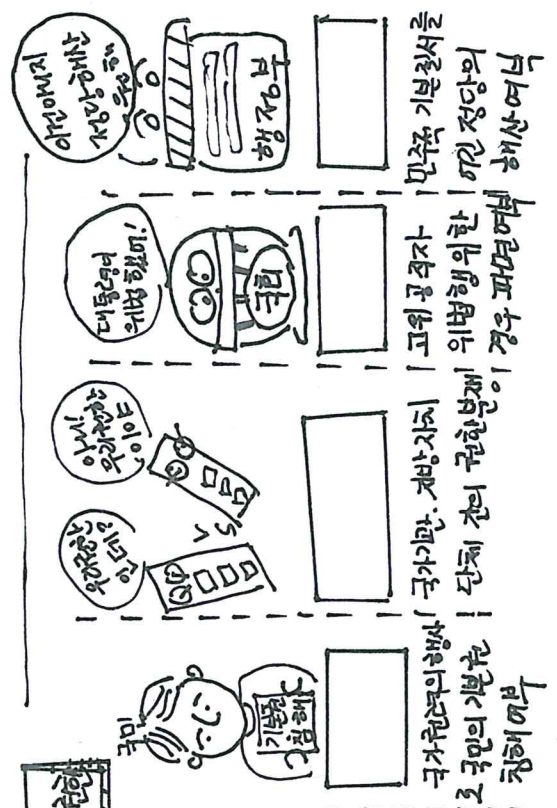 권한
국민
기본권
침해
국가권력의 행사
로 국민의 기본권
침해 여부
우리권한
인데용
VS
아냐!
우리권한
이야
국가기관·지방자치
단체 간의 권한분쟁
대통령이
위법했어!
국회
고위 공직자
위법행위한
경우 파면여부
정당해산
원해
행정부
민주적 기본질서를
어긴 정당의
해산여부